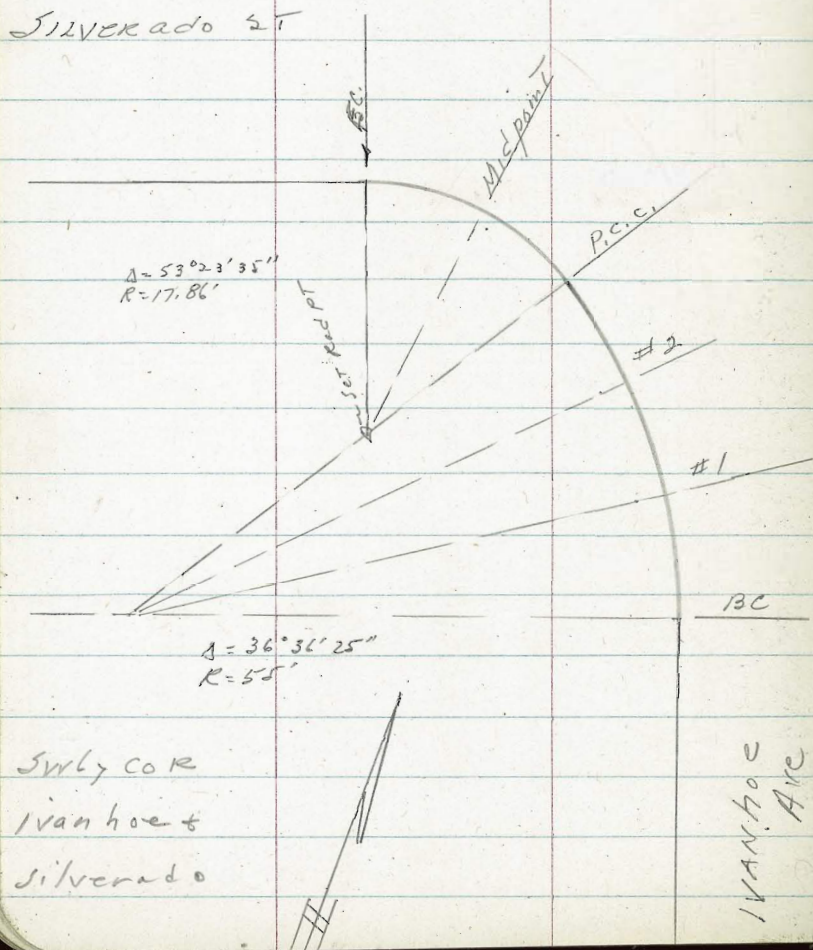 Silverado ST
B.C.
Midpoint
P.C.C.
Δ = 53°23'35"
R = 17.86'
Set Rad PT
#2
#1
BC
Δ = 36°36'25"
R = 55'
SWly COR
Ivanhoe &
Silverado
IVANhoe
Ave